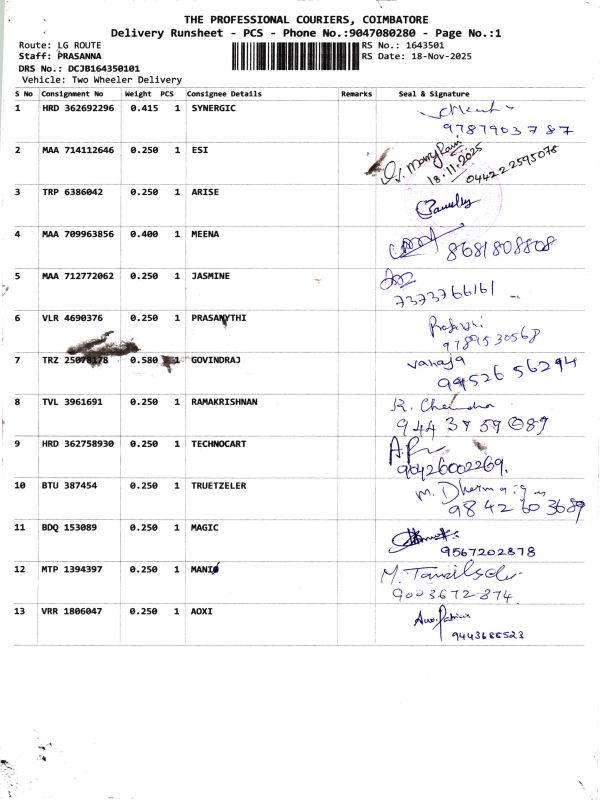 THE PROFESSIONAL COURIERS, COIMBATORE
Delivery Runsheet - PCS - Phone No.:9047080280 - Page No.:1
Route: LG ROUTE RS No.: 1643501
Staff: PRASANNA RS Date: 18-Nov-2025
DRS No.: DCJB164350101
Vehicle: Two Wheeler Delivery
S No Consignment No Weight PCS Consignee Details Remarks Seal & Signature
1 HRD 362692296 0.415 1 SYNERGIC
9787903787
2 MAA 714112646 0.250 1 ESI
18.11.2025
044222595078
3 TRP 6386042 0.250 1 ARISE
4 MAA 709963856 0.400 1 MEENA
8681808808
5 MAA 712772062 0.250 1 JASMINE
7373766161
6 VLR 4690376 0.250 1 PRASANYTHI
9789530568
7 TRZ 25078178 0.580 1 GOVINDRAJ
vanaja
99526 56294
8 TVL 3961691 0.250 1 RAMAKRISHNAN
R. Chandra
944 37 59 089
9 HRD 362758930 0.250 1 TECHNOCART
90426002269.
10 BTU 387454 0.250 1 TRUETZELER
98 42 60 3689
11 BDQ 153089 0.250 1 MAGIC
9567202878
12 MTP 1394397 0.250 1 MANI
9003672874.
13 VRR 1806047 0.250 1 AOXI
9443686523